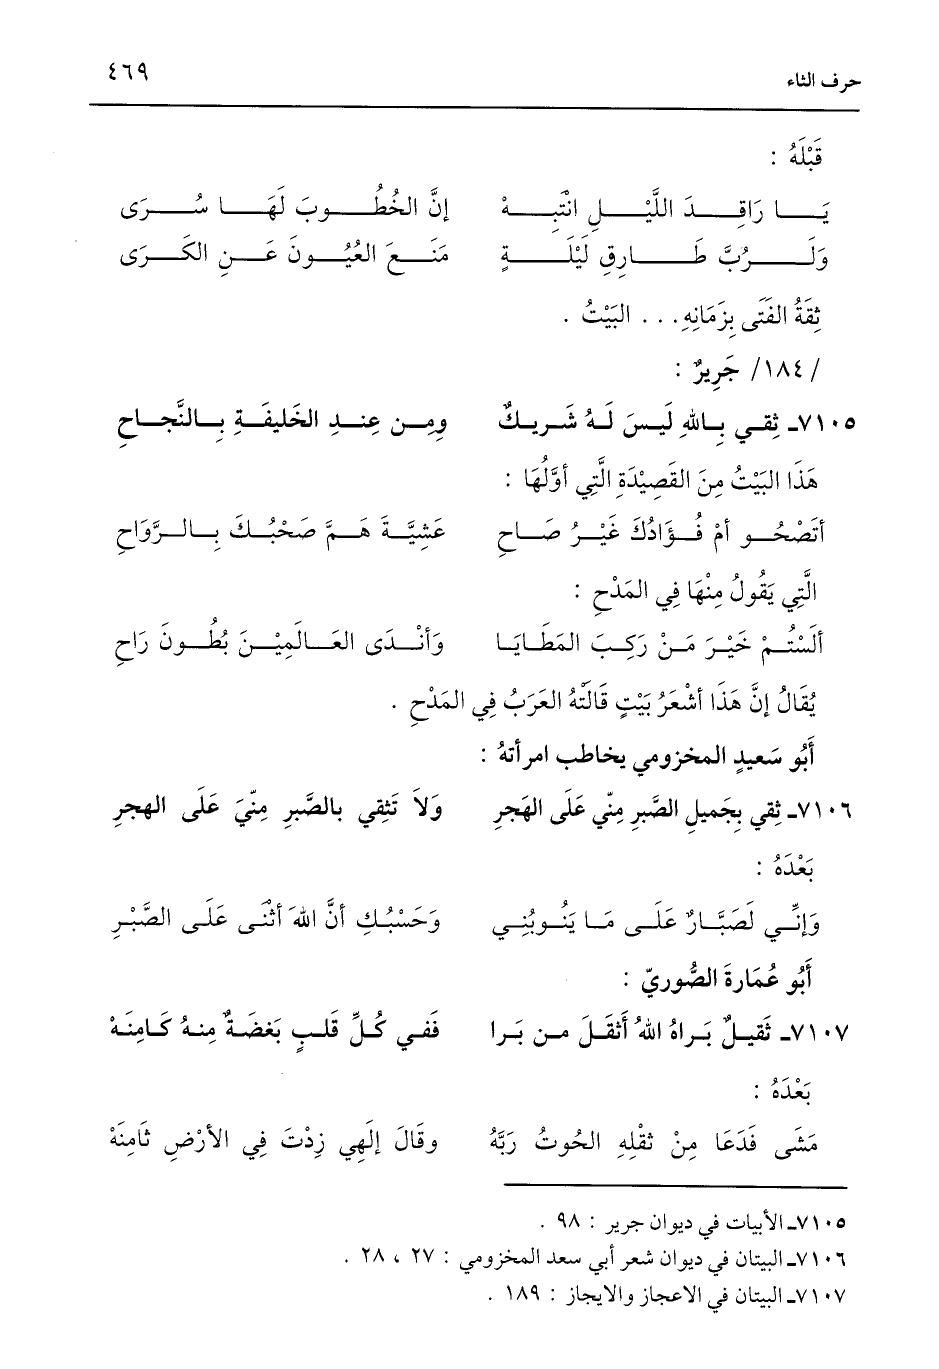 حرف الثاء ٤٦٩
قَبْلَهُ :
يَا رَاقِدَ اللَّيْلِ انْتَبِهْ إنَّ الخُطُوبَ لَهَا سُرَى
وَلَرُبَّ طَارِقِ لَيْلَةٍ مَنَعَ العُيُونَ عَنِ الكَرَى
ثِقَةُ الفَتَى بِزَمَانِهِ. . . البَيْتُ .
/١٨٤/ جَرِيرٌ :
٧١٠٥ـ ثِقي بِاللهِ لَيسَ لَهُ شَرِيكٌ ومِن عِندِ الخَليفَةِ بِالنَّجاحِ
هَذَا البَيْتُ مِنَ القَصِيْدَةِ الَّتِي أوَّلُهَا :
أتَصْحُو أمْ فُؤَادُكَ غَيْرُ صَاحِ عَشِيَّةَ هَمَّ صَحْبُكَ بِالرَّوَاحِ
الَّتِي يَقُولُ مِنْهَا فِي المَدْحِ :
ألَسْتُمْ خَيْرَ مَنْ رَكِبَ المَطَايَا وَأنْدَى العَالَمِيْنَ بُطُونَ رَاحِ
يُقَالُ إنَّ هَذَا أشْعَرُ بَيْتٍ قَالَتْهُ العَرَبُ فِي المَدْحِ .
أَبُو سَعيدٍ المخزومي يخاطب امرأتهُ :
٧١٠٦ـ ثِقي بِجَميلِ الصَّبرِ مِنّي عَلَى الهَجرِ وَلاَ تَثِقي بالصَّبرِ مِنّيَ عَلَى الهجرِ
بَعْدَهُ :
وَإنِّي لَصَبَّارٌ عَلَى مَا يَنُوبُنِي وَحَسْبُكِ أنَّ اللهَ أثْنَى عَلَى الصَّبْرِ
أَبُو عُمَارةَ الصُّوريّ :
٧١٠٧ـ ثَقيلٌ بَراهُ اللهُ أَثقَلَ من بَرا فَفي كُلِّ قَلبٍ بَغضَةٌ مِنهُ كَامِنَهْ
بَعْدَهُ :
مَشَى فَدَعَا مِنْ ثقْلِهِ الحُوتُ رَبَّهُ وقَالَ إلَهِي زِدْتَ فِي الأرْضِ ثَامِنَهْ
٧١٠٥ـ الأبيات في ديوان جرير : ٩٨ .
٧١٠٦ـ البيتان في ديوان شعر أبي سعد المخزومي : ٢٧ ، ٢٨ .
٧١٠٧ـ البيتان في الاعجاز والايجاز : ١٨٩ .